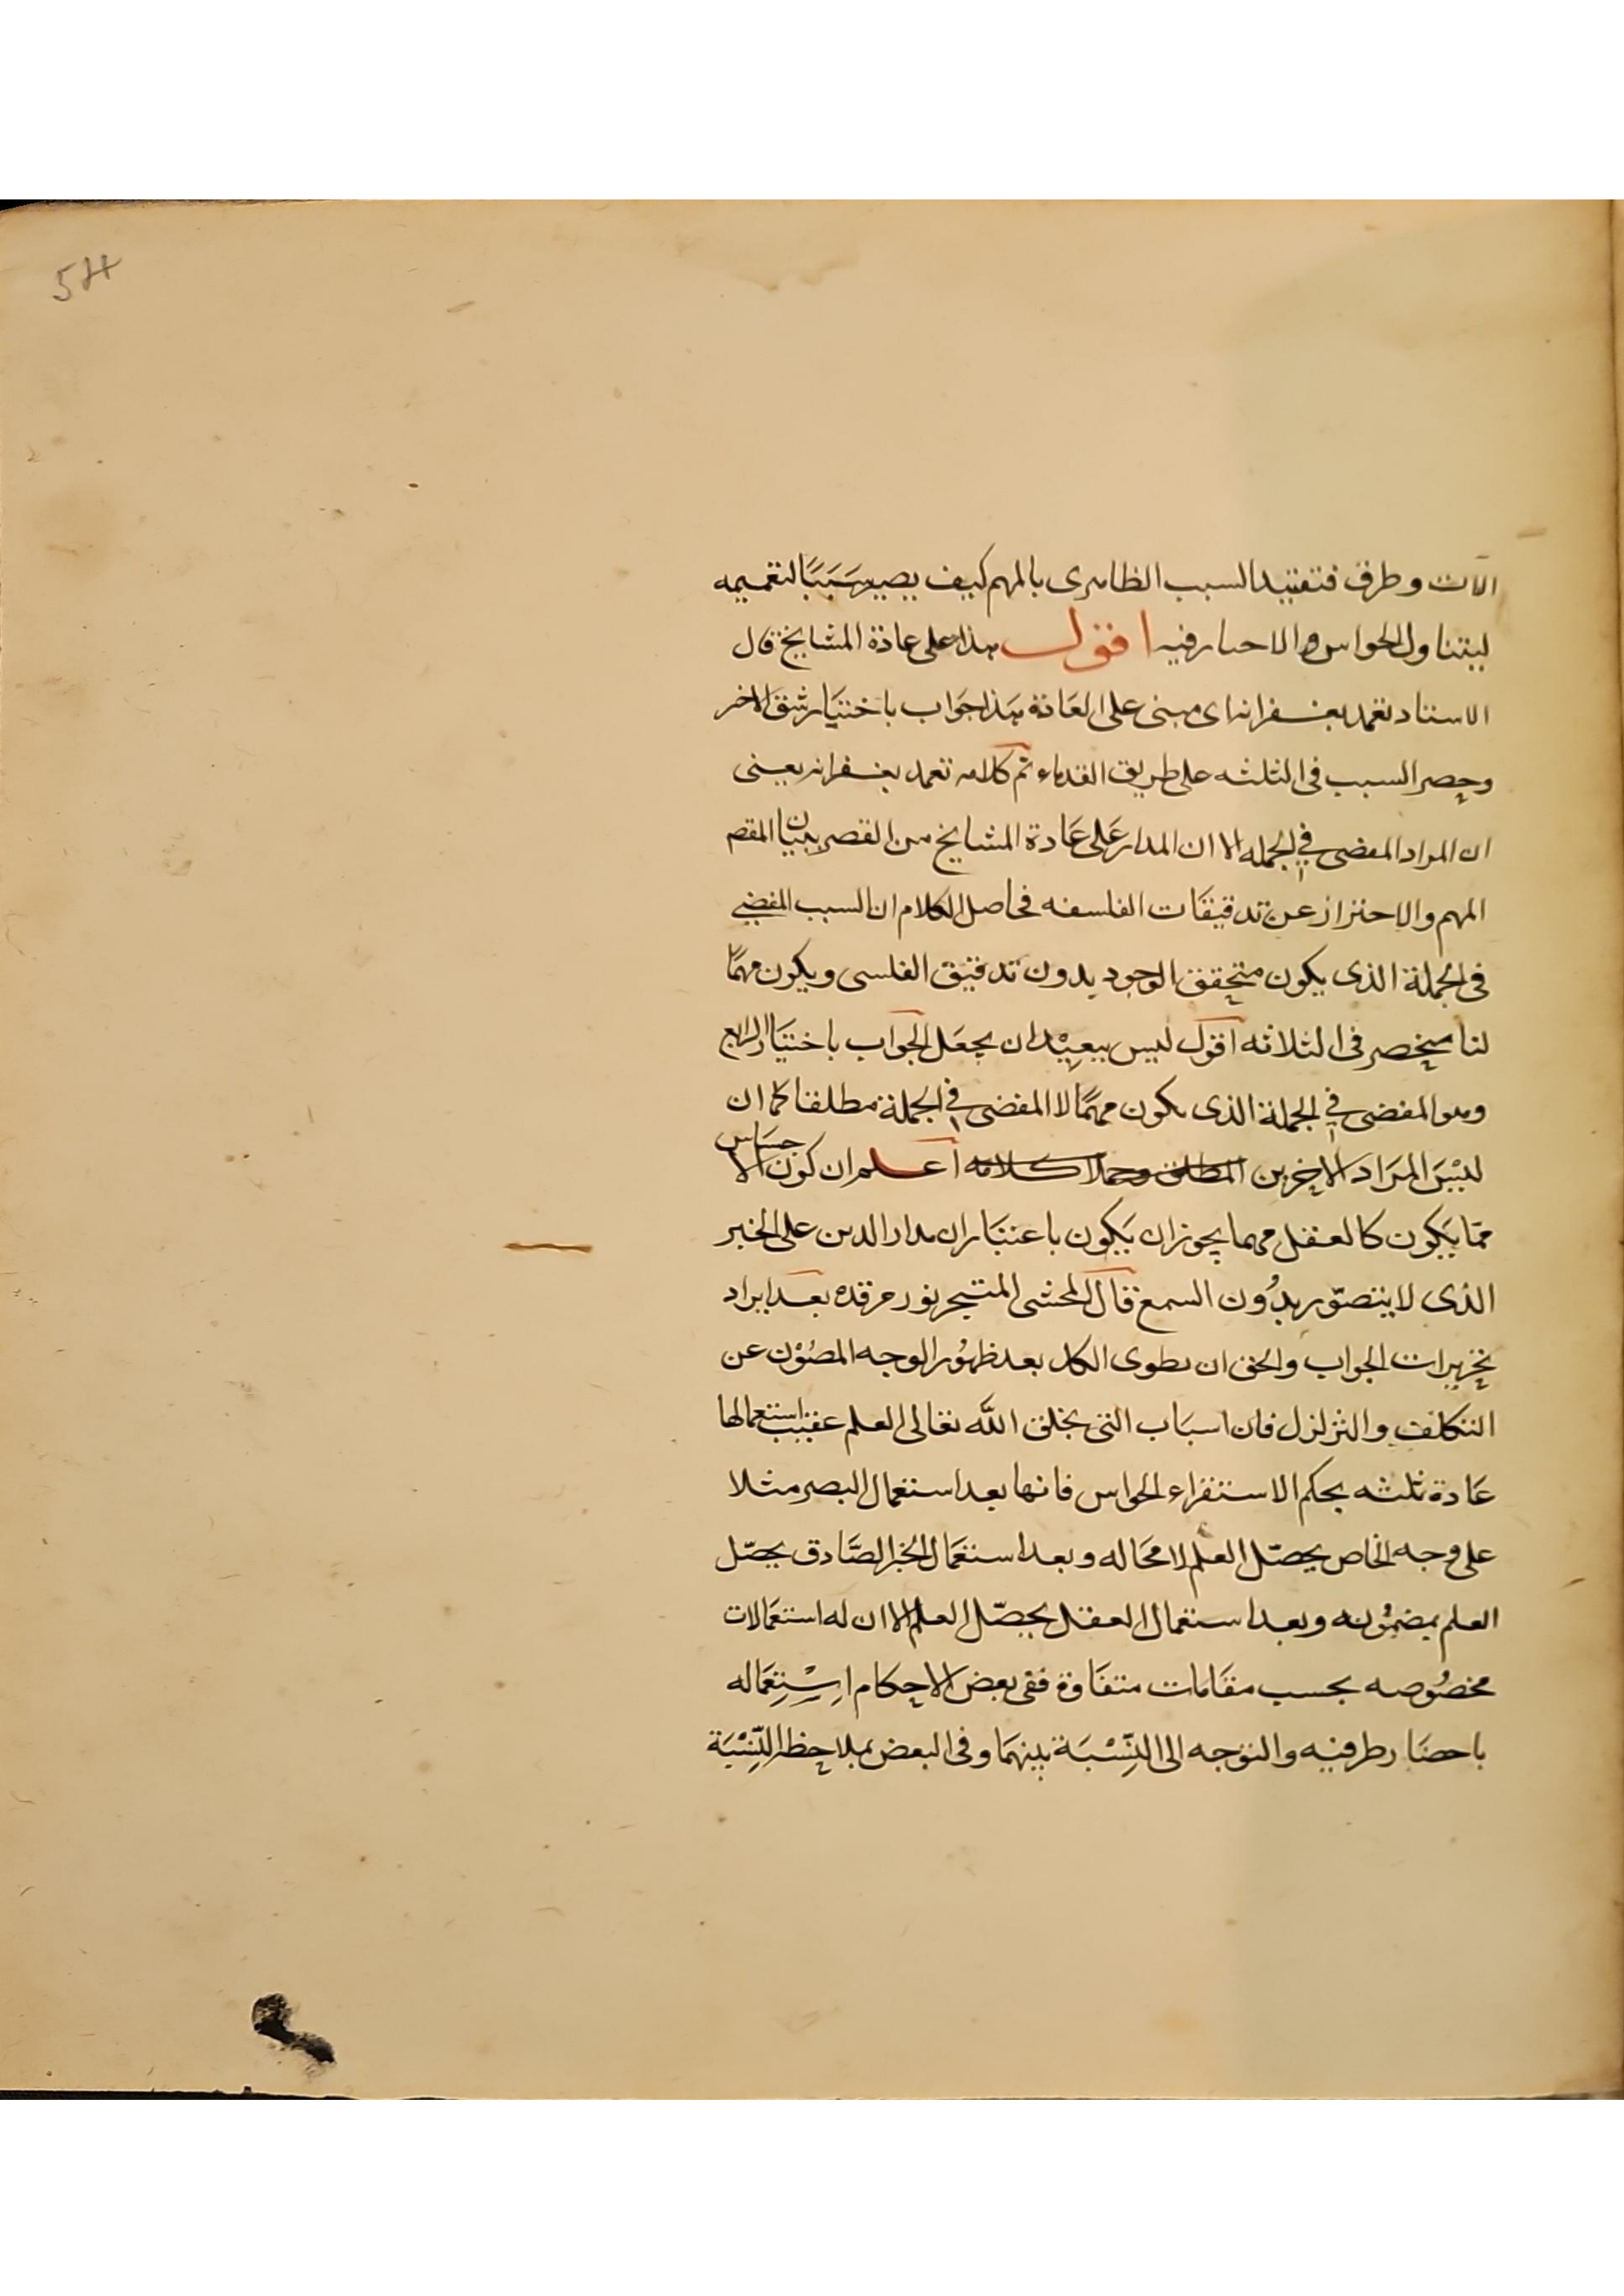 54
آلات وطرق فتقييد السبب الظاهرى بالمهم كيف يصير سَبَبًا لتعميمه
ليتناول الحواس والاخبار فيه اقول هذا على عادة المشايخ قال
الاستاد تغمد بغفرانه اى مبنى على العَادة هذا جوَاب باختيَار شق الاخر
وحصر السبب فى الثلثه على طريق القدماء تم كلامه تغمد بغفرانه يعنى
ان المراد المفضى فى الجمله الا ان المدار عَلى عَادة المشايخ من القصر ببيان المقصم
المهم والاحتراز عن تدقيقَات الفلسفه فحاصل الكلام ان السبب المفضى
فى الجُملة الذى يكون متحقق الوجود بدون تدقيق الفلسى ويكون مهمًّا
لنا منحصر فى الثلاثه اقول ليس ببعِيْد ان يجعَل الجوَاب باختيَار الرابع
وهو المفضى فى الجملة الذى يكون مهمًّا لا المفضى فى الجملة مطلقا كما ان
ليْسَ المرَاد الاخرين المطلق وحملا كلامه اعلم ان كون الاحسَاس
ممّا يَكون كالعقل مهما يجوز ان يَكون باعتبَار ان مدار الدين على الخبر
الذى لا يتصوّر بدُون السمع قال المحشى المتبحر نور مرقده بعد ايراد
تحريرات الجواب والحق ان يطوى الكل بعد ظهُور الوجه المصُوْن عن
التكلف والتزلزل فان اسبَاب التى يخلق الله تعالى العلم عقيب استعمالها
عَادة ثلثه بحكم الاستقراء الحواس فانها بعد استعمال البصر مثلا
على وجه الخاص يحصّل العلم لا محَاله وبعد استعمَال الخبر الصَّادق يحصّل
العلم بمضمُونه وبعد استعمال العقل يحصّل العلم الا ان له استعمَالات
مخصُوصه بحسب مقَامات متفَاوة ففى بعض الاحكام اِسْتِعمَاله
باحضَار طرفيه والتوجه الى النِّسْبَة بينهمَا وفى البعض بملاحظ النِّسْبَة